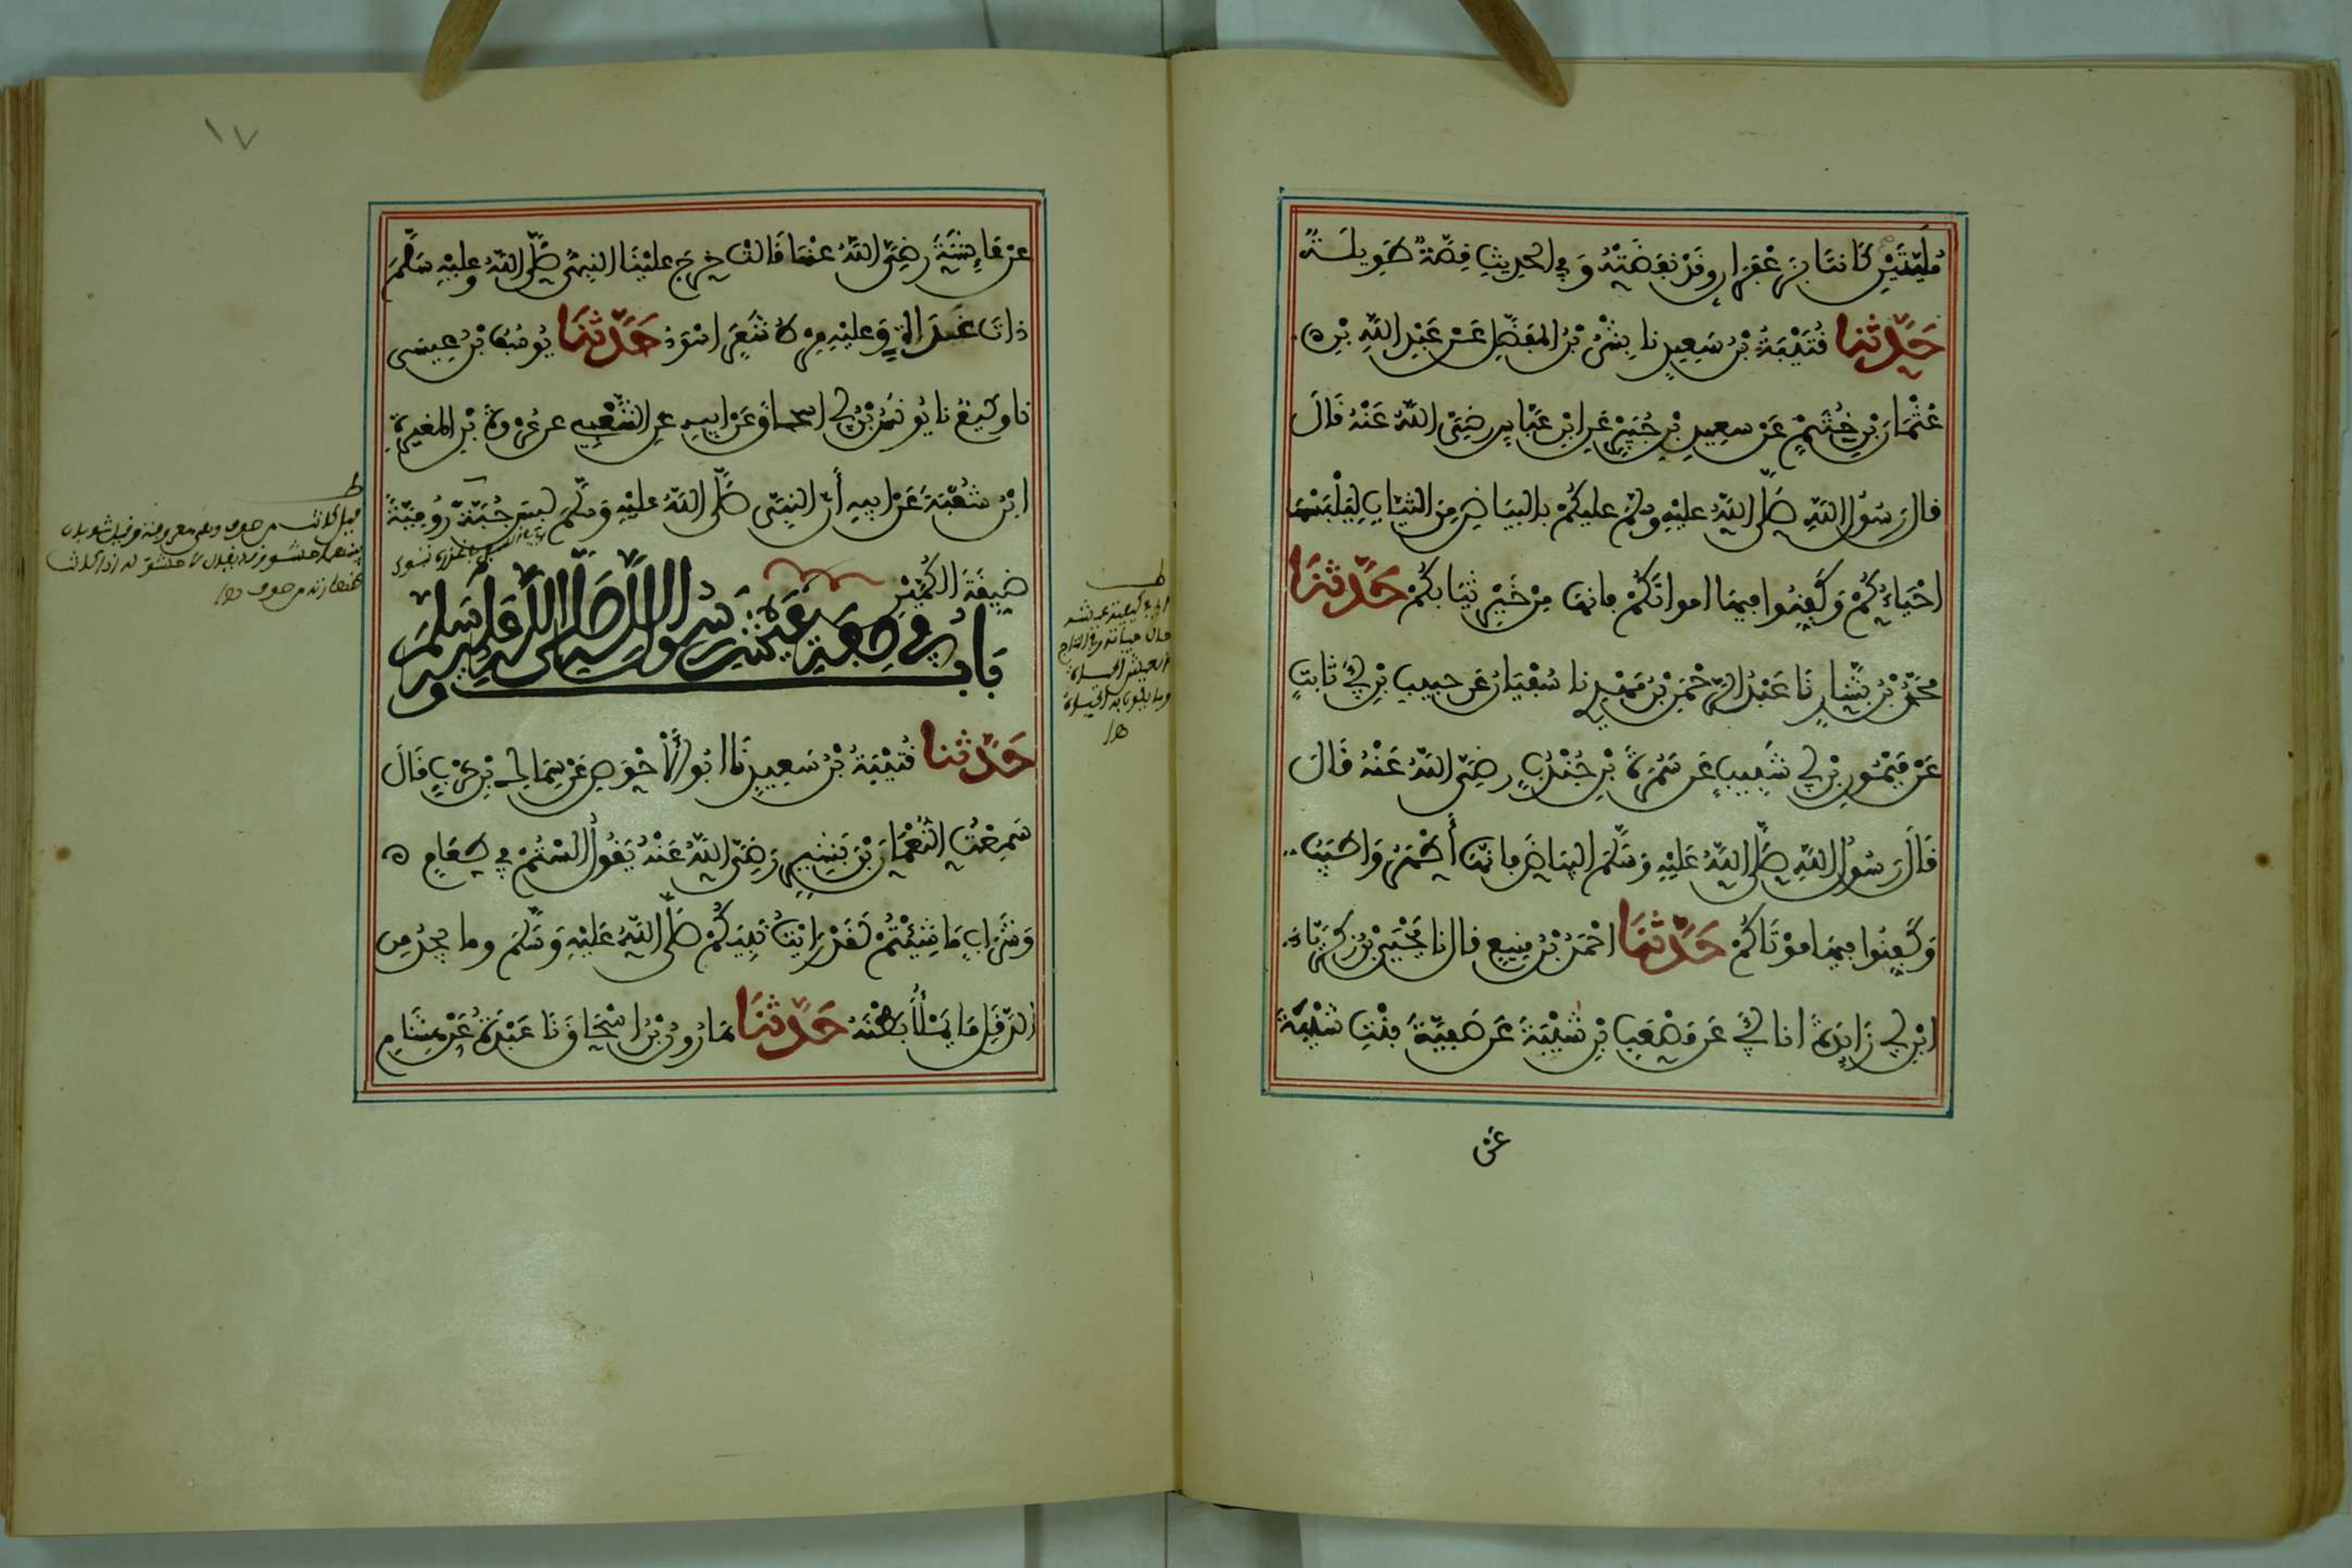 مُلَيَّتَيْنِ كَانتَا بِزَعْفَرَانٍ وَقَدْ نَفَضَتْهُ وَفِي الحديثِ قِصَّةٌ طَوِيلَةٌ
حَدَّثنا قُتَيْبَةُ بْنُ سَعِيدٍ نا بِشْرُ بْنُ المفَضَّلِ عَنْ عَبْدِ اللَّهِ بْنِ
عُثْمَانَ بْنِ خُثَيْمٍ عَنْ سعِيدِ بْنِ جُبَيْرٍ عَنِ ابْنِ عَبَّاسٍ رضِيَ اللَّهُ عَنْهُ قَالَ
قال رَسُولُ اللَّهِ صَلَّى اللَّهُ عليْهِ وسلم عليكُمْ بالبَيَاضِ مِنَ الثيَابِ لِيَلْبَسْهَا
احْيَاءُكُمْ وَكَفِّنُوا فِيهَا امواتَكُمْ فإنهَا مِنْ خَيْرِ ثيَابكُمْ حَدَّثنَا
محمَّدُ بْنُ بَشَّارٍ نَا عَبْدُ الرَّحْمَنِ بْنُ مَهْدِي نا سُفْيَانُ عَن حبيبِ بْنِ أَبي ثابتٍ
عَنْ مَيْمُونِ بْنِ أبي شَبِيبٍ عَن سَمُرَةَ بْنِ جُنْدُبٍ رضِيَ اللَّهُ عَنْهُ قَالَ
قَالَ رَسُولُ اللَّهِ صَلَّى اللَّهُ عَلَيْهِ وَسَلَّمَ البَسُوا البَيَاضَ فإنهَا أَطْهَرُ وَاطيَبُ
وَكَفِّنُوا فِيهَا موْتَاكُمْ حَدَّثنَا احْمَدُ بْنُ منِيعٍ قال نا يَحْيَى بْنُ زكَرِيَّاءَ
ابْنِ أبي زَايِدَةَ انا أبي عَن مُصْعَبِ بْنِ شَيْبَةَ عَن صَفِيَّةَ بنْتِ شَيْبَةَ
عَنْ
١٧
عَنْ عَاِئشَةَ رضِيَ اللَّهُ عنهَا قَالت خرج عليْنَا النبيُّ صَلَّى اللَّهُ عليْهِ وسَلَّمَ
ذاتَ غَدَاةٍ وَعليْهِ مِرْطُ شَعَرٍ اسْوَدُ حَدَّثنَا يُوسُفُ بْنُ عِيسَى
نا وكِيعٌ نا يُونُسُ بْنُ أبي اسحاقَ عَنْ ابيهِ عنِ الشَّعْبِيِ عن عُرْوَةَ بْنِ المُغِيرَةِ
ابْنِ شُعْبَةَ عَنْ ابيهِ أَنَّ النبيَّ صَلَّى اللَّهُ عليْهِ وَسَلَّمَ لبِسَ جُبَّةً رُومِيَّةً
ضيِّقَةَ الكُمَّيْنِ
بَابٌ في صِفَةِ عَيْشِ رَسُولِ اللَّهِ صَلَّى اللَّهُ عَلَيْهِ وَسَلَّمَ
حَدَّثنا قُتيْبَةُ بْنُ سَعِيدٍ نَا ابُو الأَحْوَصِ عَنْ سِمَاكِ بْنِ حَرْبٍ قَالَ
سَمِعْتُ النُّعْمَانَ بْنَ بَشِيرٍ رَضِيَ اللَّهُ عَنْهُ يَقُولُ أَلَسْتُمْ فِي طَعَامٍ
وَشَرَابٍ مَا شِئْتُمْ لَقَدْ رَايْتُ نَبِيَّكُمْ صَلَّى اللَّهُ عَلَيْهِ وَسَلَّمَ وما يجِدُ مِن
الدَّقَلِ مَا يَمْلَأُ بَطْنَهُ حَدَّثنَا هَارُونُ بْنُ اسْحَاقَ نَا عَبْدَةُ عَنْ هِشَامِ